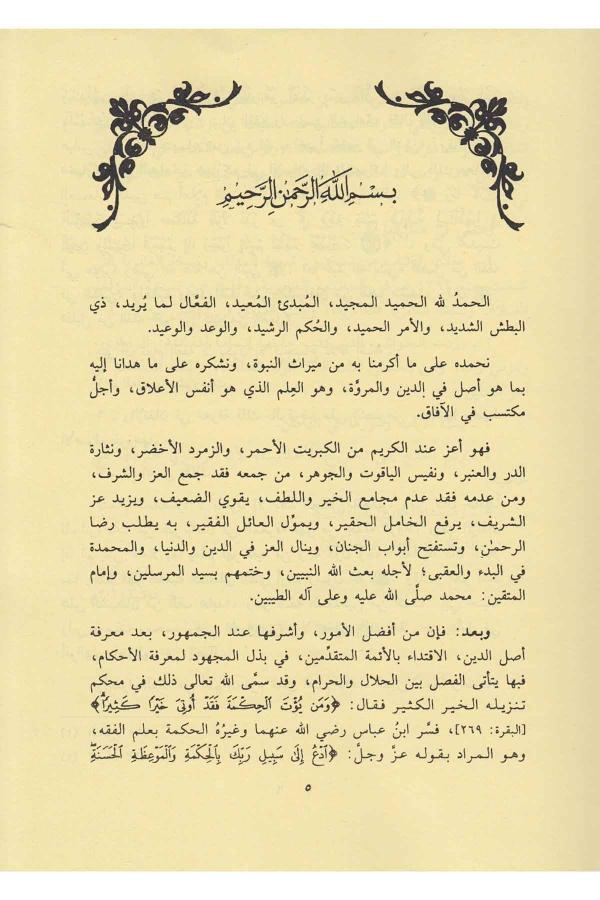 بِسْمِ اللَّهِ الرَّحْمٰنِ الرَّحِيْمِ
الحمدُ لله الحميد المجيد، المُبدئ المُعيد، الفعَّال لما يُريد، ذي
البطش الشديد، والأمر الحميد، والحُكم الرشيد، والوعد والوعيد.
نحمده على ما أكرمنا به من ميراث النبوة، ونشكره على ما هدانا إليه
بما هو أصل في الدين والمروَّة، وهو العِلم الذي هو أنفس الأعلاق، وأجلُّ
مكتسب في الآفاق.
فهو أعز عند الكريم من الكبريت الأحمر، والزمرد الأخضر، ونثارة
الدر والعنبر، ونفيس الياقوت والجوهر، من جمعه فقد جمع العز والشرف،
ومن عدمه فقد عدم مجامع الخير واللطف، يقوي الضعيف، ويزيد عز
الشريف، يرفع الخامل الحقير، ويموِّل العائل الفقير، به يطلب رضا
الرحمٰن، وتستفتح أبواب الجنان، وينال العز في الدين والدنيا، والمحمدة
في البدء والعقبى؛ لأجله بعث الله النبيين، وختمهم بسيد المرسلين، وإمام
المتقين: محمد صلَّى الله عليه وعلى آله الطيبين.
وبعد: فإن من أفضل الأمور، وأشرفها عند الجمهور، بعد معرفة
أصل الدين، الاقتداء بالأئمة المتقدِّمين، في بذل المجهود لمعرفة الأحكام،
فبها يتأتى الفصل بين الحلال والحرام، وقد سمَّى الله تعالى ذلك في محكم
تنزيله الخير الكثير فقال: ﴿وَمَن يُؤْتَ الْحِكْمَةَ فَقَدْ أُوتِيَ خَيْرًا كَثِيرًا﴾
[البقرة: ٢٦٩]، فسَّر ابنُ عباس رضي الله عنهما وغيرُهُ الحكمة بعلم الفقه،
وهو المراد بقوله عزَّ وجلَّ: ﴿ادْعُ إِلَىٰ سَبِيلِ رَبِّكَ بِالْحِكْمَةِ وَالْمَوْعِظَةِ الْحَسَنَةِ
٥